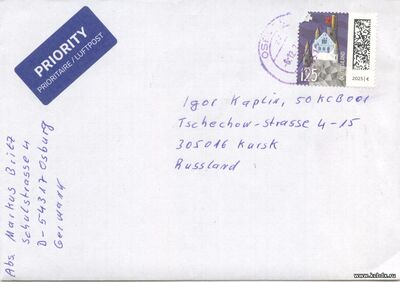 PRIORITY
PRIORITAIRE / LUFTPOST
125
2025 | €
Igor Kaplin, 50KCB001
Tschechow-Strasse 4-15
305016 Kursk
Russland
Abs. Markus Britz
Schulstrasse 4
D-54317 Osburg
Germany
www.kabdx.ru